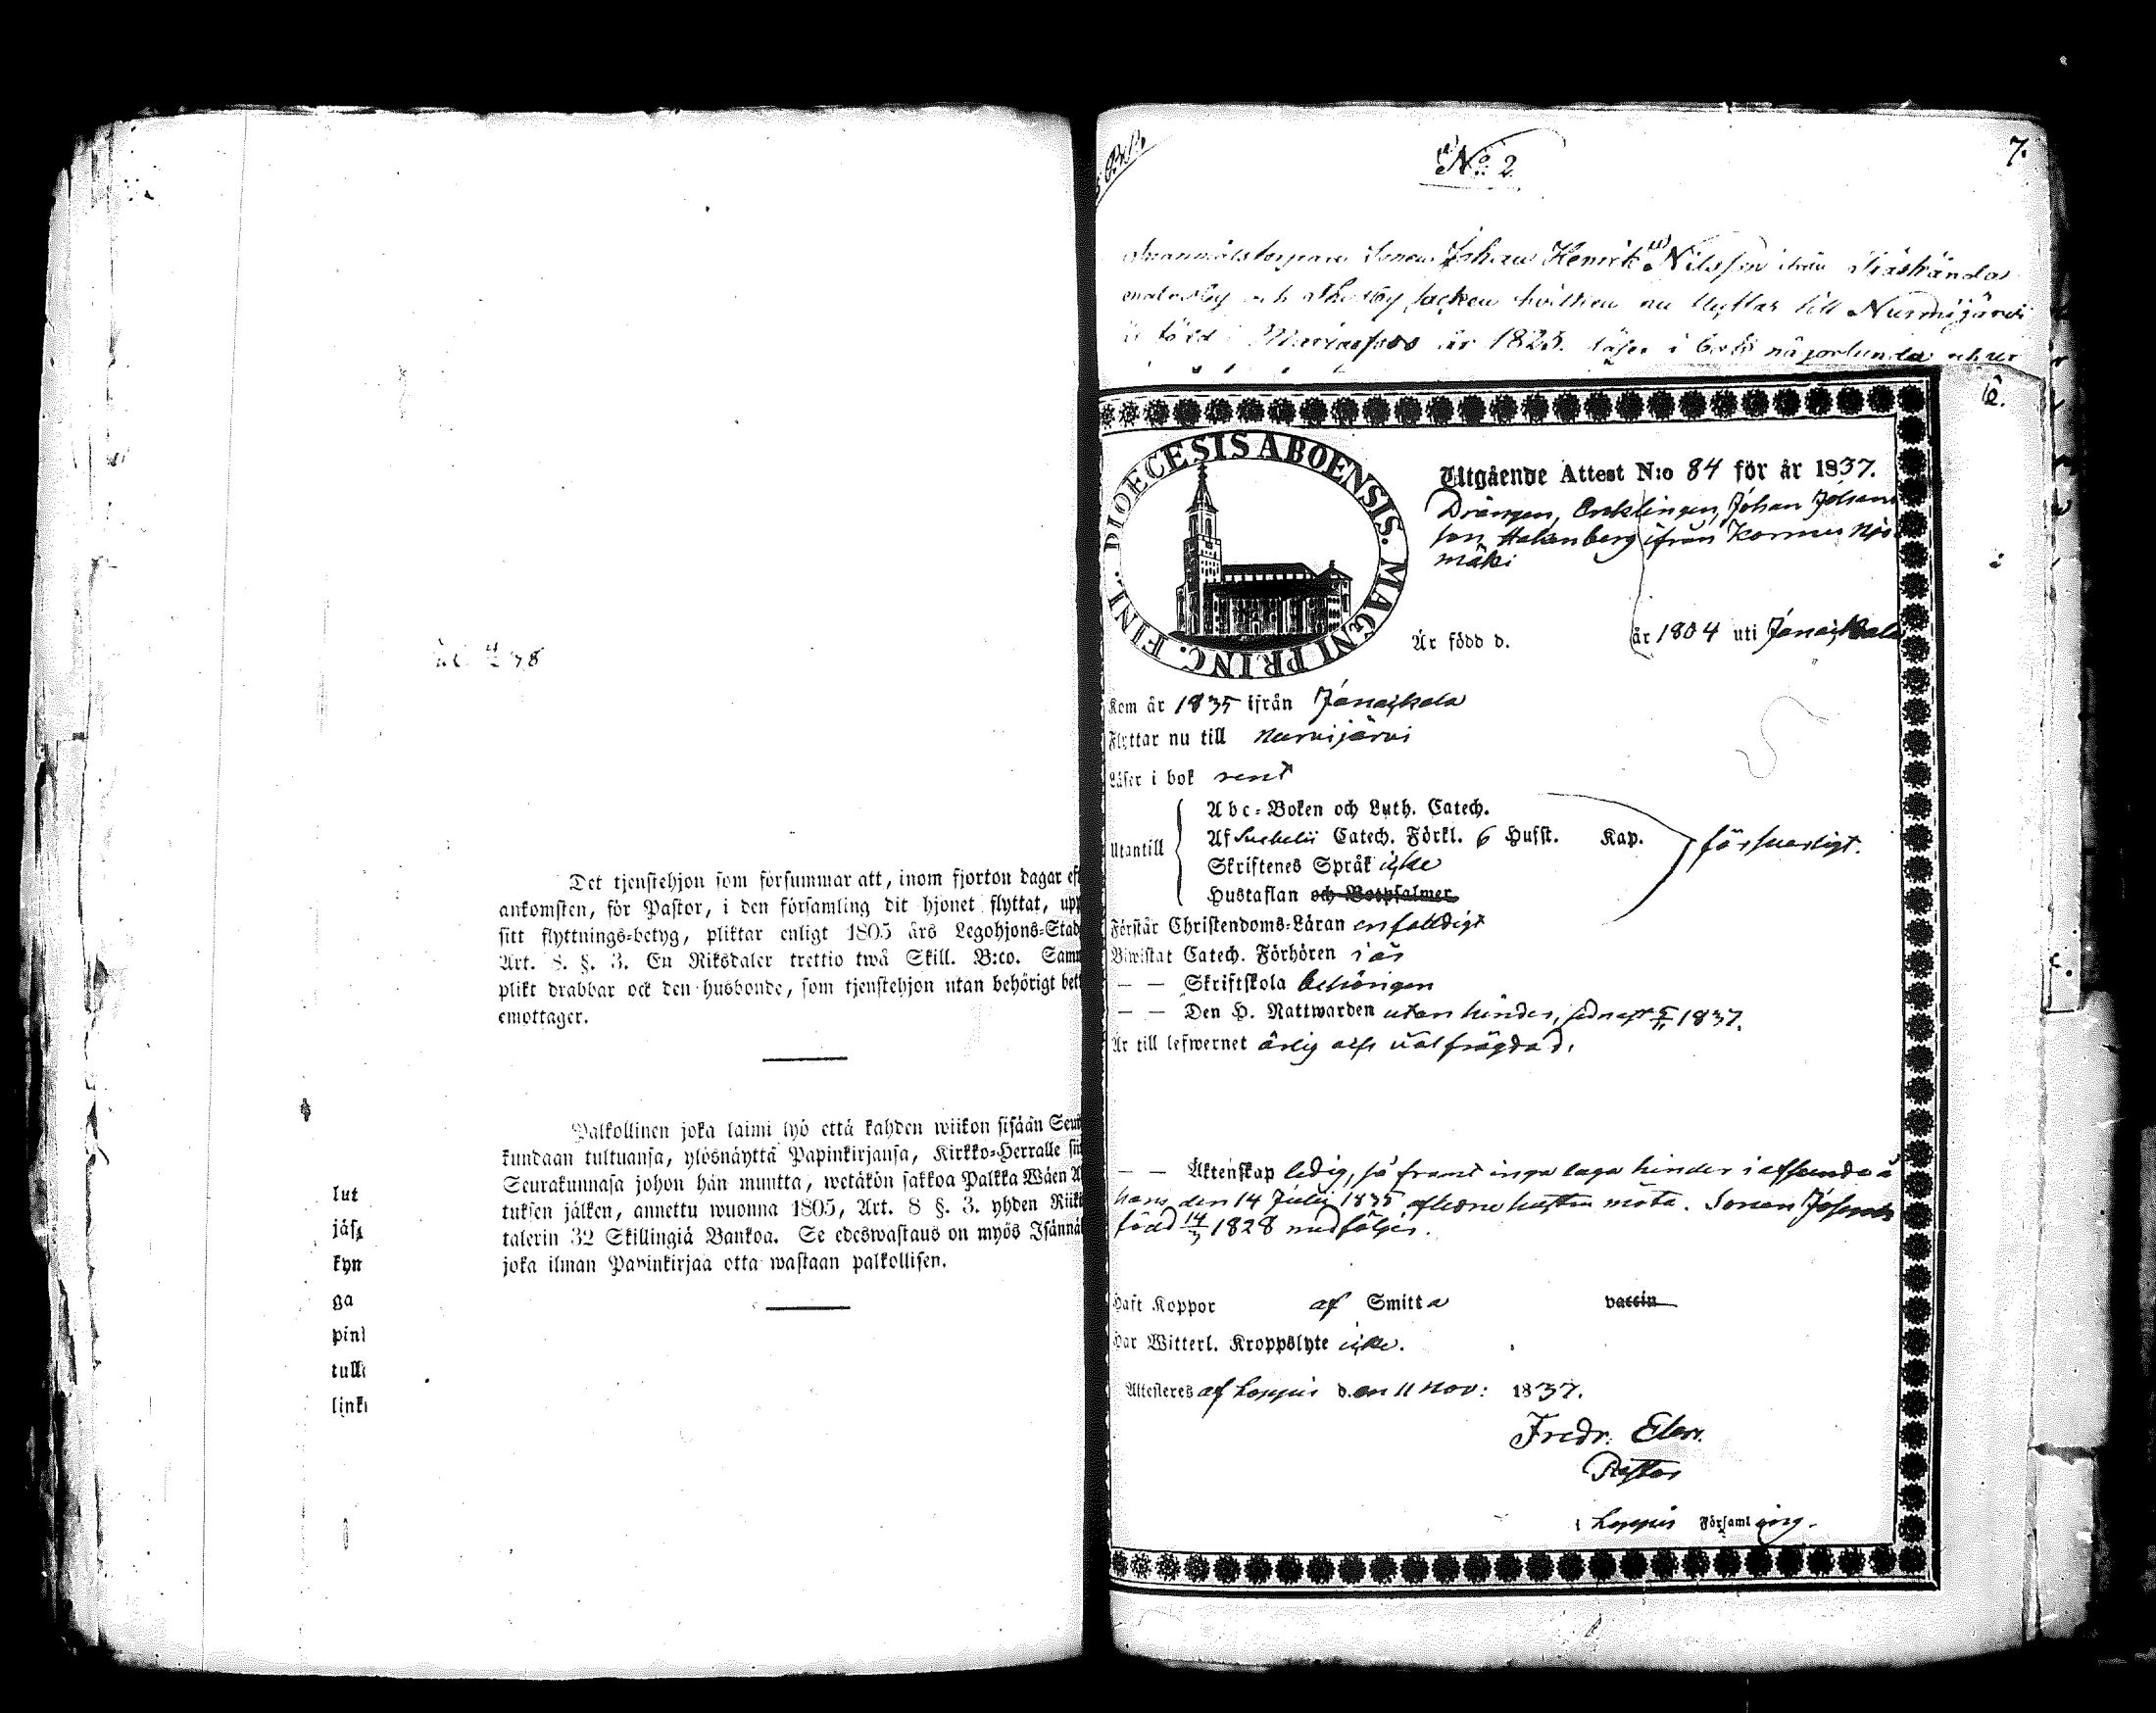 Det tjenstehjon som försummar att, inom fjorton dagar eft
ankomsten, för Pastor, i den församling dit hjonet flyttat, upp
sitt flyttnings-betyg, pliktar enligt 1805 års Legohjons-Stad
Art. 8. §. 3. En Riksdaler trettio twå Skill. B:co. Samm
plikt drabbar ock den husbonde, som tjenstehjon utan behörigt bet
emottager.
Palkollinen joka laimi lyö että kahden wiikon sisään Seur
kundaan tultuansa, ylösnäyttä Papinkirjansa, Kirkko-Herralle sii
Seurakunnasa johon hän muutta, wetäkön sakkoa Palkka Wäen A
tuksen jälken, annettu wuonna 1805, Art. 8 §. 3. yhden Riiki
talerin 32 Skillingiä Bankoa. Se edeswastaus on myös Isännä
joka ilman Papinkirjaa otta wastaan palkollisen.
lut
jäs
kyn
ga
pin
tull
link
No: 2
7.
Johan Henrik Nilsson ifrån Träskända
socken hvilken nu flyttar till Nurmijärvi
är född i år 1823. läser i bok någorlunda
6.
DIOECESIS ABOENSIS. MAGNI PRINC. FINL.
Utgående Attest N:o 84 för år 1837.
Drängen, Enklingen, Johan Johans
son Malmberg ifrån Kormu
mäki
Är född d. år 1804 uti Janakkala
Kom år 1835 ifrån Janakkala
Flyttar nu till Nurmijärvi
Läser i bok rent
Utantill
Abc-Boken och Luth. Catech.
Af Svebelii Catech. Förkl. 6 Hufst. Kap. försvarligt.
Skriftenes Språk icke
Hustaflan och Botpsalmer
Förstår Christendoms-Läran enfaldigt
Biwistat Catech. Förhören i år
— — Skriftskola behörigen
— — Den H. Nattwarden utan hinder, sednast 1837.
Är till lefwernet ärlig och välfrägdad.
— — Äktenskap ledig, så framt inga laga hinder i afseende å
hans den 14 Julii 1835 aflidne hustru möta. Sonen Johannes
född 14/3 1828 medföljer.
Haft Koppor af Smitta vaccin
Har Witterl. Kroppslyte icke.
Attesteres af Loppis d. en 11 Nov: 1837.
Fredr. Elers.
Pastor
i Loppis Församling.